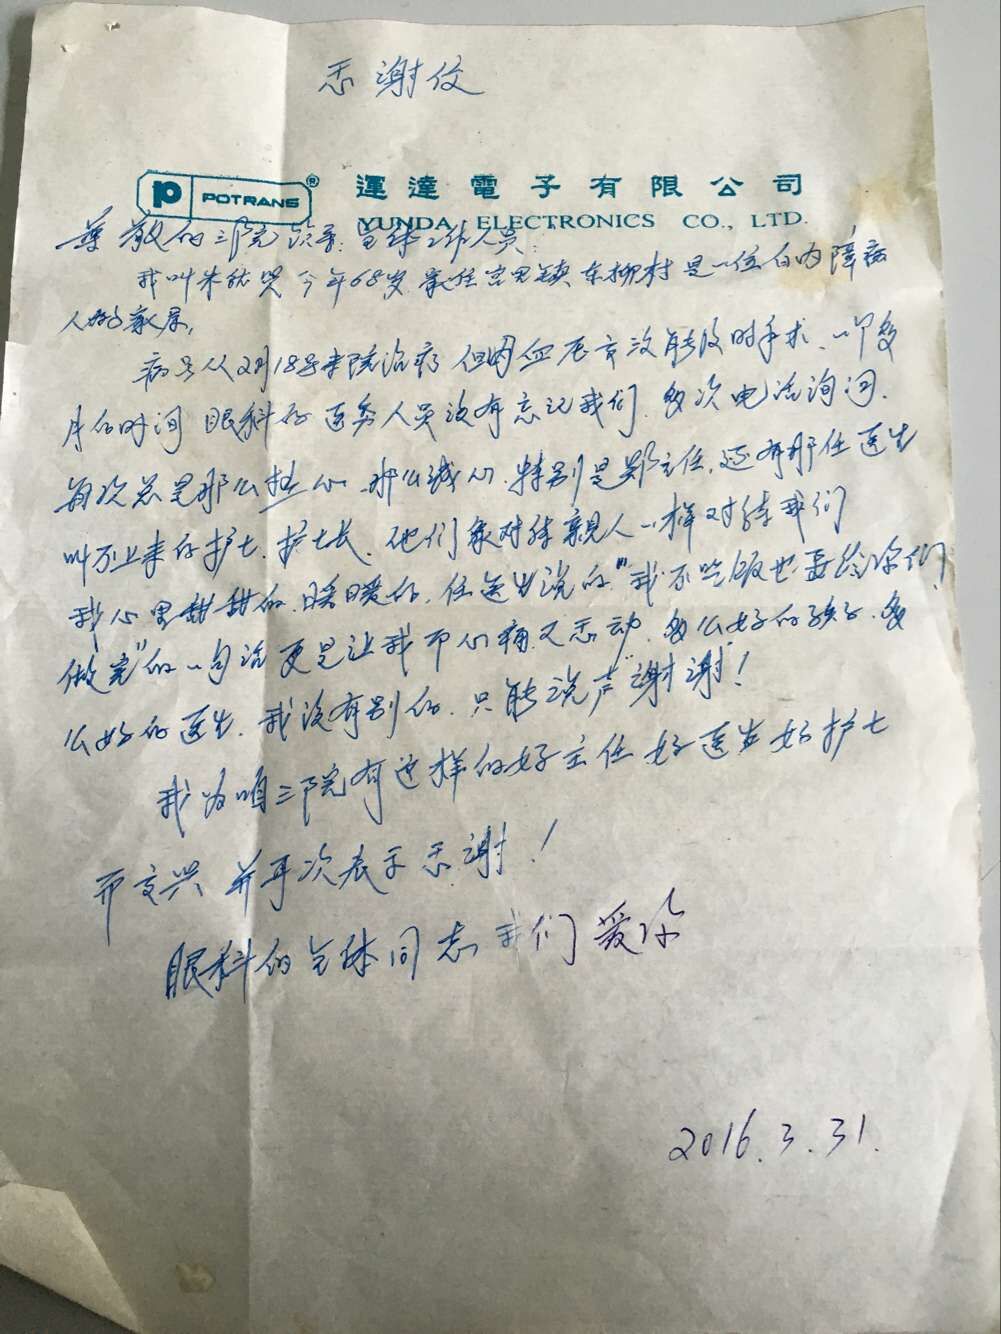 感谢信
POTRANS ® 運達電子有限公司
YUNDA ELECTRONICS CO., LTD.
尊敬的三院领导、全体工作人员:
我叫朱 今年68岁 家住宫里镇东柳村 是一位白内障病
人的家属,
病号从2月18号来院治疗 但因血压高没能及时手术、一个多
月的时间 眼科的医务人员没有忘记我们、多次电话询问、
每次总是那么热心、那么诚心、特别是郑主任、还有那任医生
叫不上来的护士、护士长、他们象对待亲人一样对待我们
我心里甜甜的、暖暖的、任医生说的"我不吃饭也要给你们
做完"的一句话更是让我即心痛又感动、多么好的孩子、多
么好的医生、我没有别的、只能说声"谢谢"!
我为咱三院有这样的好主任 好医生 好护士
而高兴 并再次表示感谢!
眼科的全体同志我们爱你
2016.3.31.